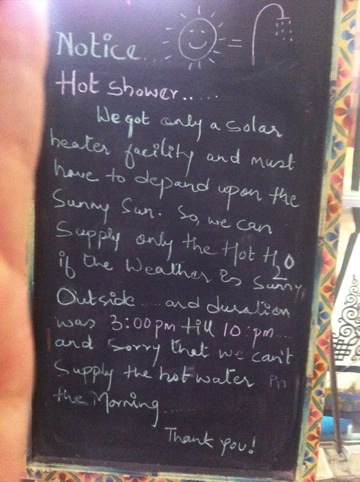 Notice...
=
Hot shower.....
We got only a solar
heater facility and must
have to depand upon the
Sunny Sun. So, we can
Supply only the Hot H2O
if the Weather is Sunny
Outside..... and duration
was 3:00 pm till 10:pm...
and sorry that we can't
Supply the hot water in
the Morning...
Thank you!